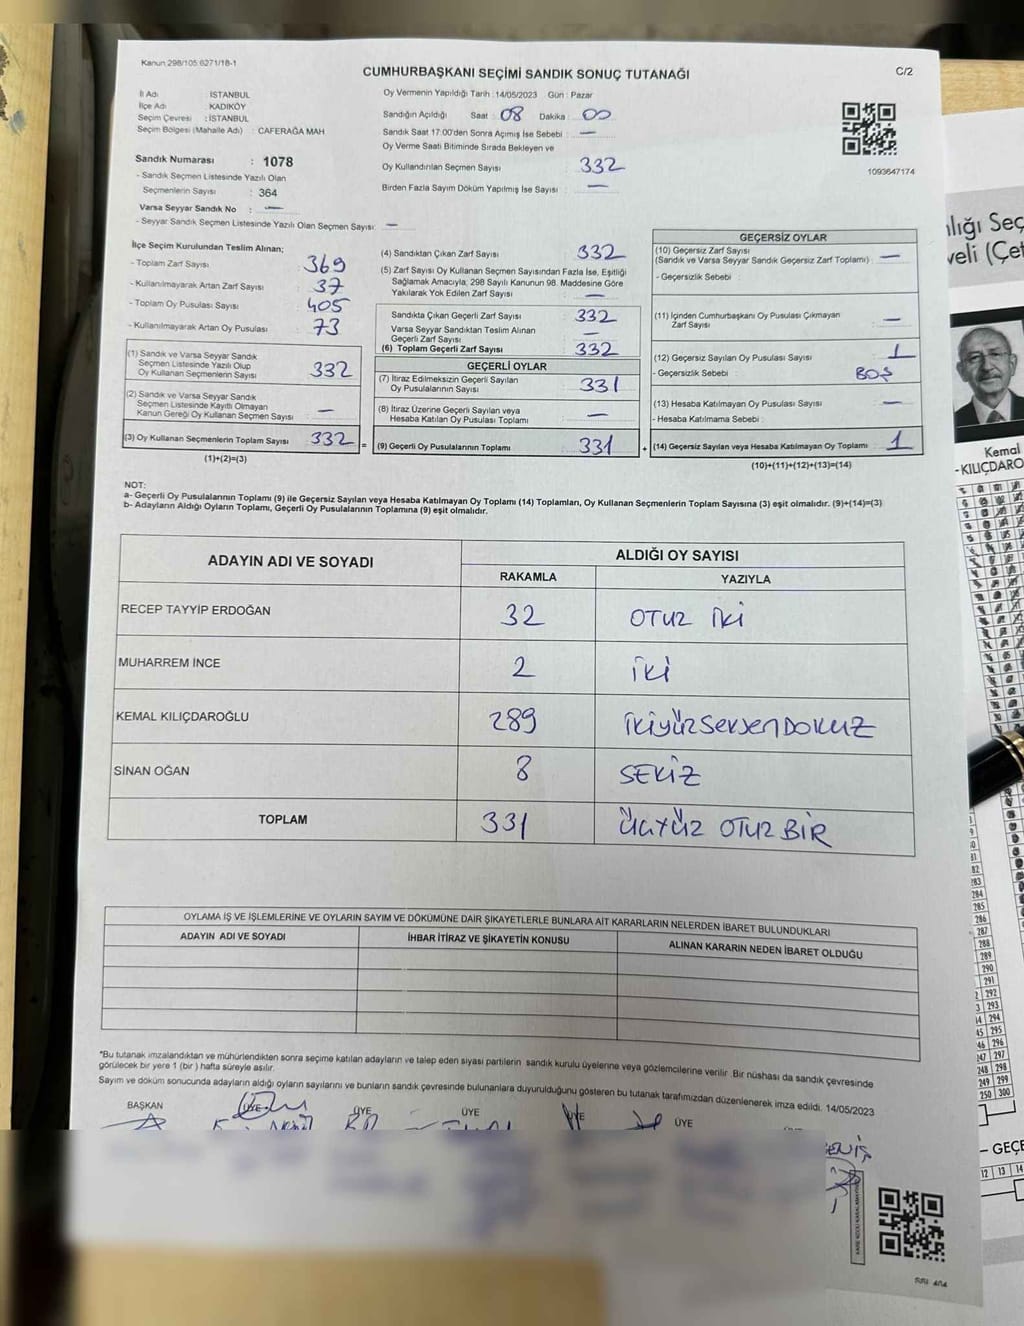 Kanun 298/105 6271/18-1
CUMHURBAŞKANI SEÇİMİ SANDIK SONUÇ TUTANAĞI
C/2
İl Adı : İSTANBUL
İlçe Adı : KADIKÖY
Seçim Çevresi : İSTANBUL
Seçim Bölgesi (Mahalle Adı) : CAFERAĞA MAH
Sandık Numarası : 1078
- Sandık Seçmen Listesinde Yazılı Olan
Seçmenlerin Sayısı : 364
Varsa Seyyar Sandık No : —
- Seyyar Sandık Seçmen Listesinde Yazılı Olan Seçmen Sayısı: —
Oy Vermenin Yapıldığı Tarih : 14/05/2023 Gün : Pazar
Sandığın Açıldığı Saat : 08 Dakika : 00
Sandık Saat 17:00'den Sonra Açımış İse Sebebi : —
Oy Verme Saati Bitiminde Sırada Bekleyen ve
Oy Kullandırılan Seçmen Sayısı : 332
Birden Fazla Sayım Döküm Yapılmış İse Sayısı : —
1093647174
İlçe Seçim Kurulundan Teslim Alınan;
- Toplam Zarf Sayısı : 369
- Kullanılmayarak Artan Zarf Sayısı : 37
- Toplam Oy Pusulası Sayısı : 405
- Kullanılmayarak Artan Oy Pusulası : 73
(1) Sandık ve Varsa Seyyar Sandık
Seçmen Listesinde Yazılı Olup
Oy Kullanan Seçmenlerin Sayısı : 332
(2) Sandık ve Varsa Seyyar Sandık
Seçmen Listesinde Kayıtlı Olmayan
Kanun Gereği Oy Kullanan Seçmen Sayısı : —
(3) Oy Kullanan Seçmenlerin Toplam Sayısı : 332 =
(1)+(2)=(3)
(4) Sandıktan Çıkan Zarf Sayısı : 332
(5) Zarf Sayısı Oy Kullanan Seçmen Sayısından Fazla İse, Eşitliği
Sağlamak Amacıyla; 298 Sayılı Kanunun 98. Maddesine Göre
Yakılarak Yok Edilen Zarf Sayısı : —
Sandıkta Çıkan Geçerli Zarf Sayısı : 332
Varsa Seyyar Sandıktan Teslim Alınan
Geçerli Zarf Sayısı : —
(6) Toplam Geçerli Zarf Sayısı : 332
GEÇERLİ OYLAR
(7) İtiraz Edilmeksizin Geçerli Sayılan
Oy Pusulalarının Sayısı : 331
(8) İtiraz Üzerine Geçerli Sayılan veya
Hesaba Katılan Oy Pusulası Toplamı : —
(9) Geçerli Oy Pusulalarının Toplamı : 331 +
GEÇERSİZ OYLAR
(10) Geçersiz Zarf Sayısı
(Sandık ve Varsa Seyyar Sandık Geçersiz Zarf Toplamı) : —
- Geçersizlik Sebebi :
(11) İçinden Cumhurbaşkanı Oy Pusulası Çıkmayan
Zarf Sayısı : —
(12) Geçersiz Sayılan Oy Pusulası Sayısı : 1
- Geçersizlik Sebebi : BOŞ
(13) Hesaba Katılmayan Oy Pusulası Sayısı : —
- Hesaba Katılmama Sebebi :
(14) Geçersiz Sayılan veya Hesaba Katılmayan Oy Toplamı : 1
(10)+(11)+(12)+(13)=(14)
NOT:
a- Geçerli Oy Pusulalarının Toplamı (9) ile Geçersiz Sayılan veya Hesaba Katılmayan Oy Toplamı (14) Toplamları, Oy Kullanan Seçmenlerin Toplam Sayısına (3) eşit olmalıdır. (9)+(14)=(3)
b- Adayların Aldığı Oyların Toplamı, Geçerli Oy Pusulalarının Toplamına (9) eşit olmalıdır.
ADAYIN ADI VE SOYADI
ALDIĞI OY SAYISI
RAKAMLA YAZIYLA
RECEP TAYYİP ERDOĞAN 32 OTUZ İKİ
MUHARREM İNCE 2 İKİ
KEMAL KILIÇDAROĞLU 289 İKİYÜZSEKSENDOKUZ
SİNAN OĞAN 8 SEKİZ
TOPLAM 331 ÜÇYÜZ OTUZ BİR
OYLAMA İŞ VE İŞLEMLERİNE VE OYLARIN SAYIM VE DÖKÜMÜNE DAİR ŞİKAYETLERLE BUNLARA AİT KARARLARIN NELERDEN İBARET BULUNDUKLARI
ADAYIN ADI VE SOYADI İHBAR İTİRAZ VE ŞİKAYETİN KONUSU ALINAN KARARIN NEDEN İBARET OLDUĞU
"Bu tutanak imzalandıktan ve mühürlendikten sonra seçime katılan adayların ve talep eden siyasi partilerin sandık kurulu üyelerine veya gözlemcilerine verilir. Bir nüshası da sandık çevresinde
görülecek bir yere 1 (bir) hafta süreyle asılır.
Sayım ve döküm sonucunda adayların aldığı oyların sayılarını ve bunların sandık çevresinde bulunanlara duyurulduğunu gösteren bu tutanak tarafımızdan düzenlenerek imza edildi. 14/05/2023
BAŞKAN ÜYE ÜYE ÜYE ÜYE ÜYE
Kemal
KILIÇDARO
283
284
285
286
287
288
289
290
291
292
293
294
295
296
297
248 298
249 299
250 300
- GEÇE
12 13 14